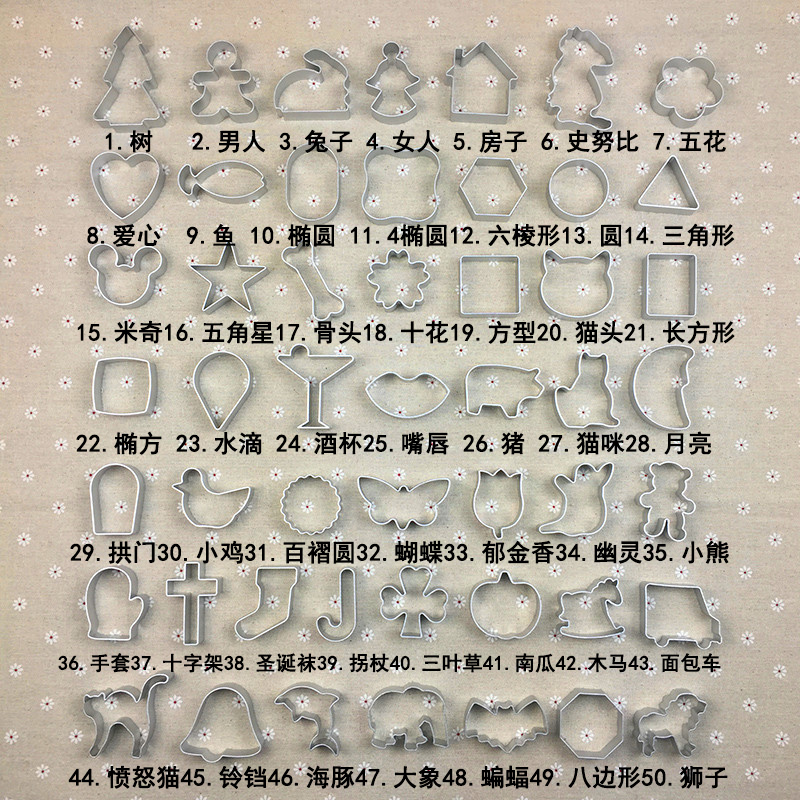 1.树 2.男人 3.兔子 4.女人 5.房子 6.史努比 7.五花
8.爱心 9.鱼 10.椭圆 11.4椭圆12.六棱形13.圆14.三角形
15.米奇16.五角星17.骨头18.十花19.方型20.猫头21.长方形
22.椭方 23.水滴 24.酒杯25.嘴唇 26.猪 27.猫咪28.月亮
29.拱门30.小鸡31.百褶圆32.蝴蝶33.郁金香34.幽灵35.小熊
36.手套37.十字架38.圣诞袜39.拐杖40.三叶草41.南瓜42.木马43.面包车
44.愤怒猫45.铃铛46.海豚47.大象48.蝙蝠49.八边形50.狮子